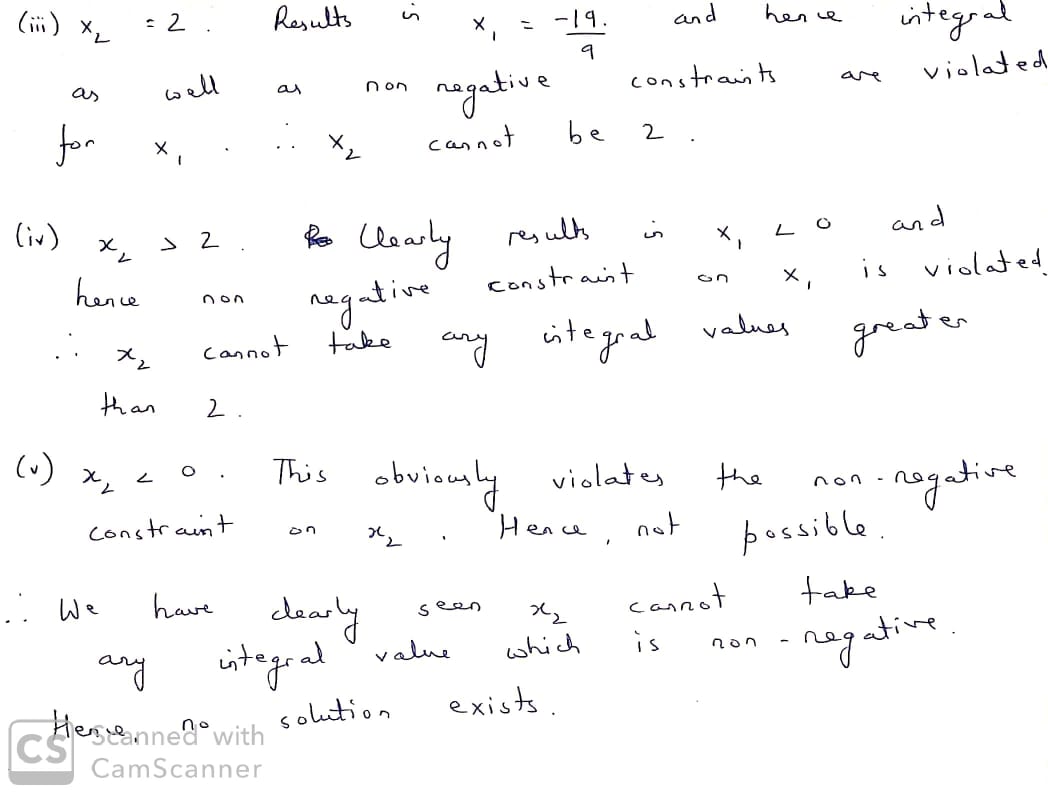 (iii) x₂ = 2 . Results in x₁ = -19/9. and hence integral
as well as non negative constraints are violated
for x₁ . ∴ x₂ cannot be 2 .
(iv) x₂ > 2 . Clearly results in x₁ < 0 and
hence non negative constraint on x₁ is violated.
∴ x₂ cannot take any integral values greater
than 2 .
(v) x₂ < 0 . This obviously violates the non-negative
constraint on x₂ . Hence, not possible.
∴ We have clearly seen x₂ cannot take
any integral value which is non-negative.
Hence, no solution exists.
CS Scanned with
CamScanner